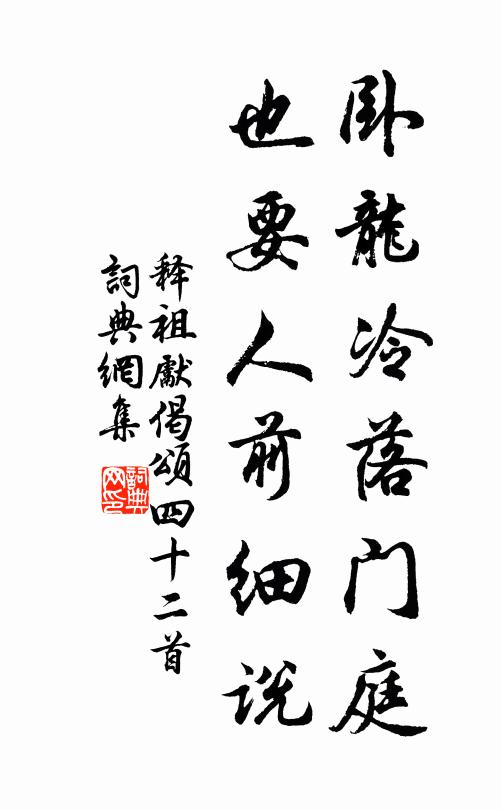 卧龍冷落门庭
也要人前细说
释祖獻偈頌四十二首
詞典網集
詞典网印